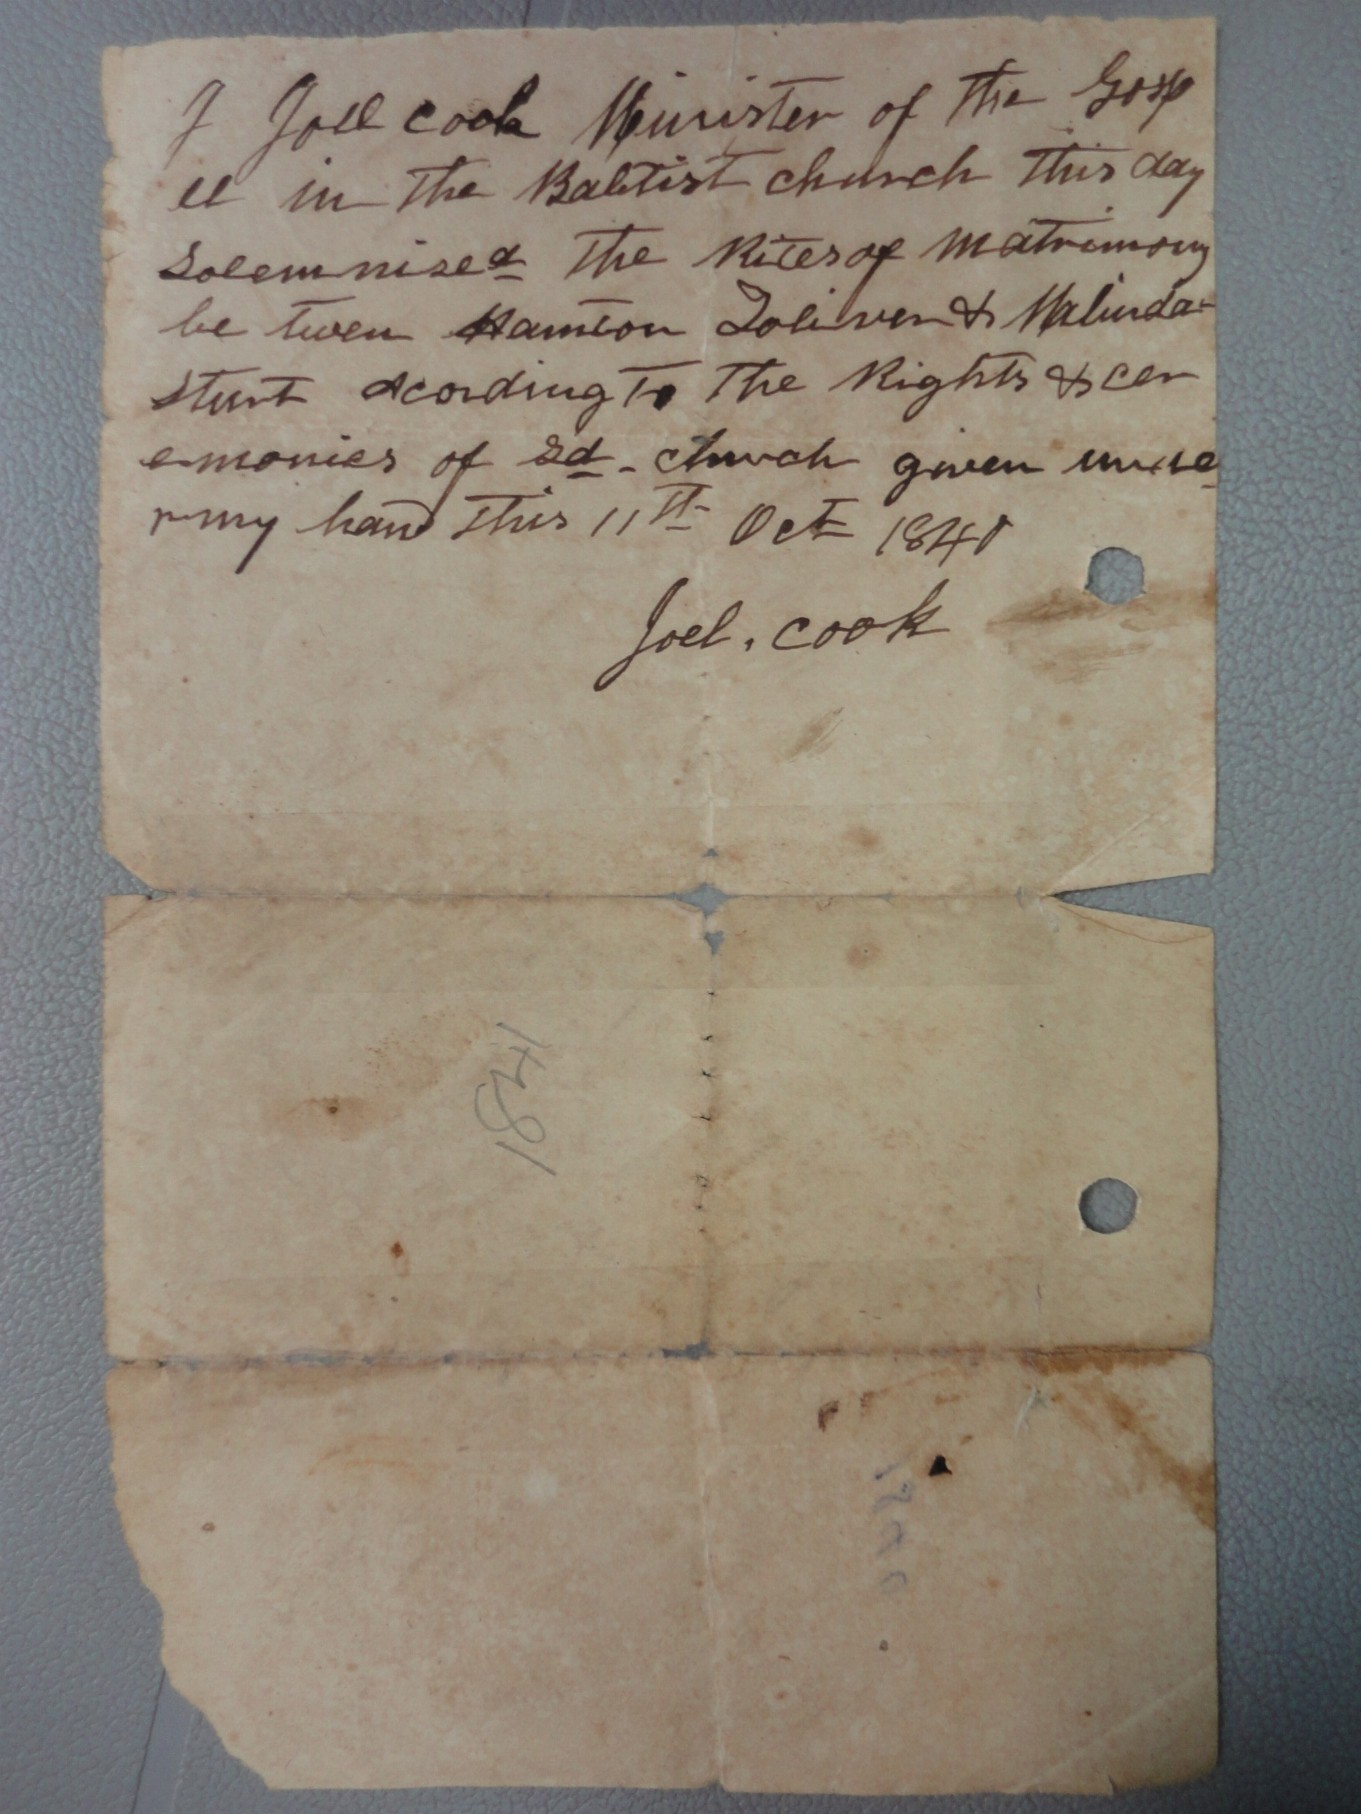 I Joel cook Minister of the Gosp
el in the Babtist church this day
Solemnised the Rites of Matrimony
be twen Hamton Toliver & Malinda
Sturt Acording to the Rights & cer
emonies of Sd church given unde
r my hand this 11th Oct
Joel. cook